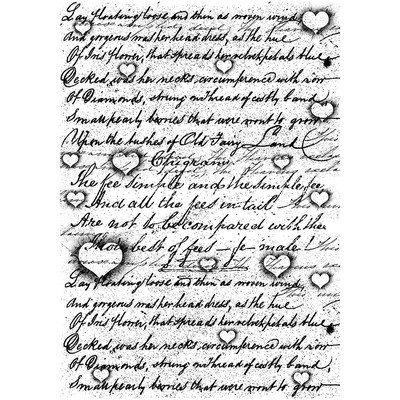 Lay floating loose and then as woven wind,
And gorgeous was her head dress, as the hue
Of Iris flower, that spreads her velvet petals blue
Decked was her necks, circumference with row
Of Diamonds, strung on thread of costly band
Small pearly berries that were wont to grow
Upon the bushes of Old Fairy Land
Epigram
The fee simple and the simple fee
And all the fees in tail
Are not to be compared with thee
Thou best of fees – fe-male!
Lay floating loose and then as woven wind,
And gorgeous was her head dress, as the hue
Of Iris flower, that spreads her velvet petals blue
Decked was her necks, circumference with row
Of Diamonds, strung on thread of costly band,
Small pearly berries that were wont to grow